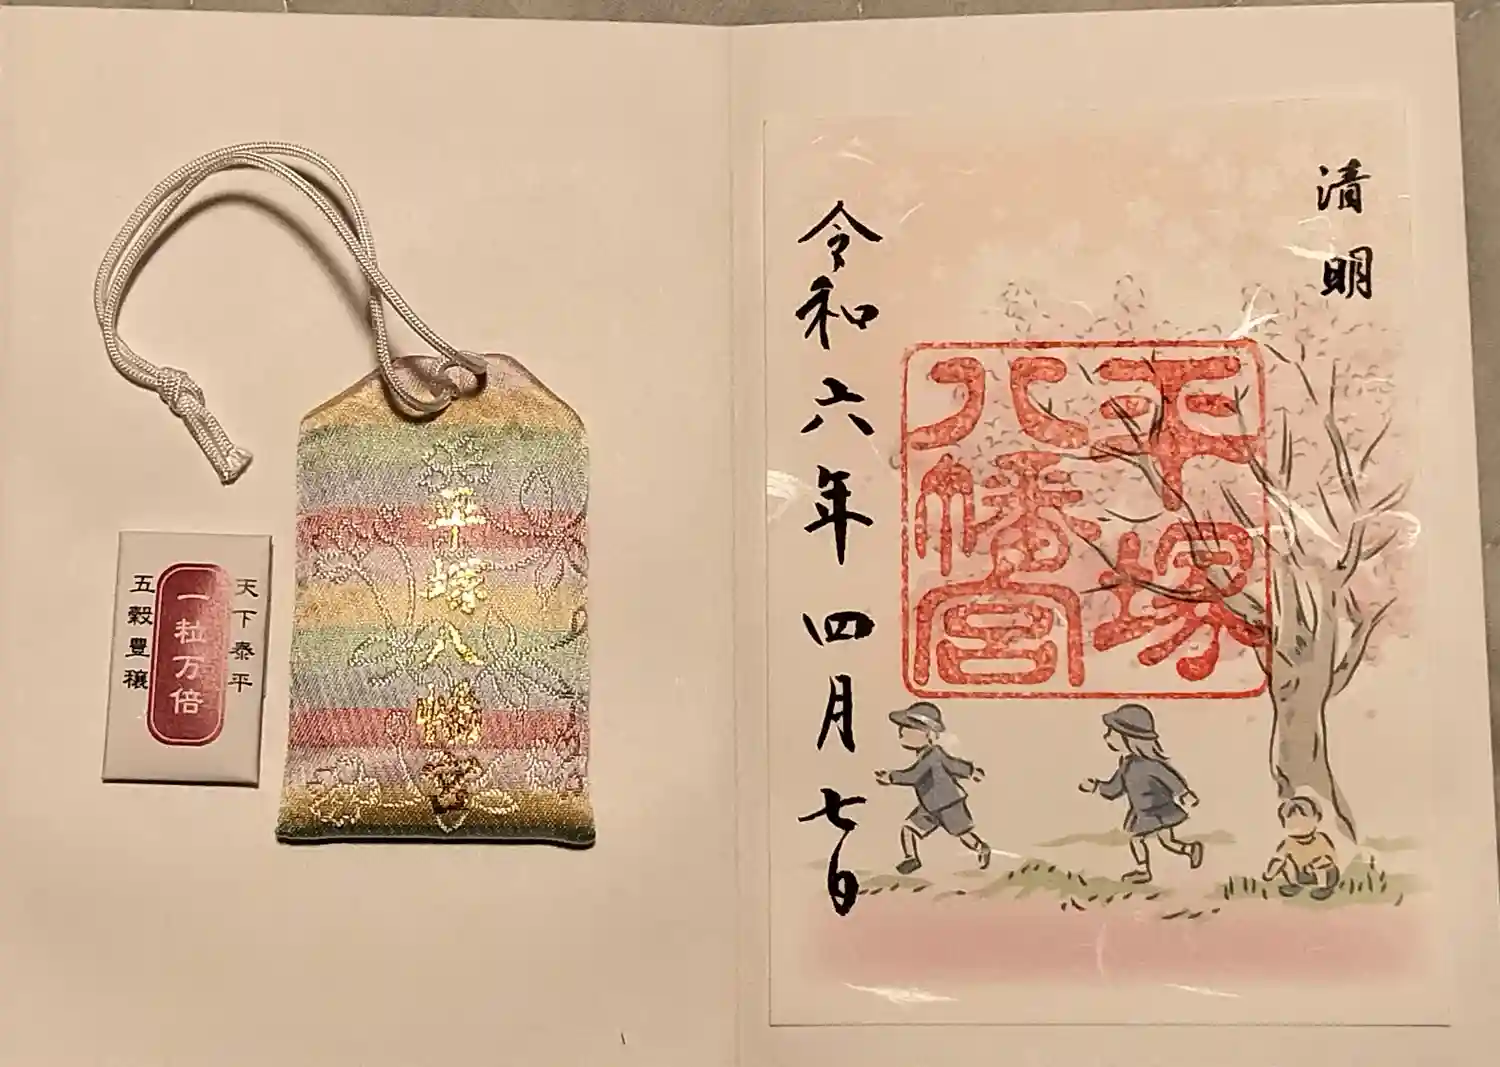 天下泰平
一粒万倍
五穀豊穣
平塚八幡宮
清明
平塚
八幡宮
令和六年四月七日